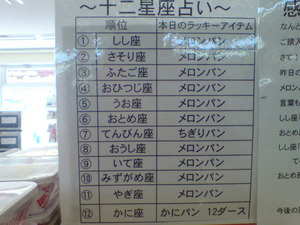 ～十二星座占い～
順位 本日のラッキーアイテム
① しし座 メロンパン
② さそり座 メロンパン
③ ふたご座 メロンパン
④ おひつじ座 メロンパン
⑤ うお座 メロンパン
⑥ おとめ座 メロンパン
⑦ てんびん座 ちぎりパン
⑧ おうし座 メロンパン
⑨ いて座 メロンパン
⑩ みずがめ座 メロンパン
⑪ やぎ座 メロンパン
⑫ かに座 かにパン 12ダース
なんと
ご購入
さて！
昨日の
メロン
言葉も
しし座
おとめ
しし座
今後の